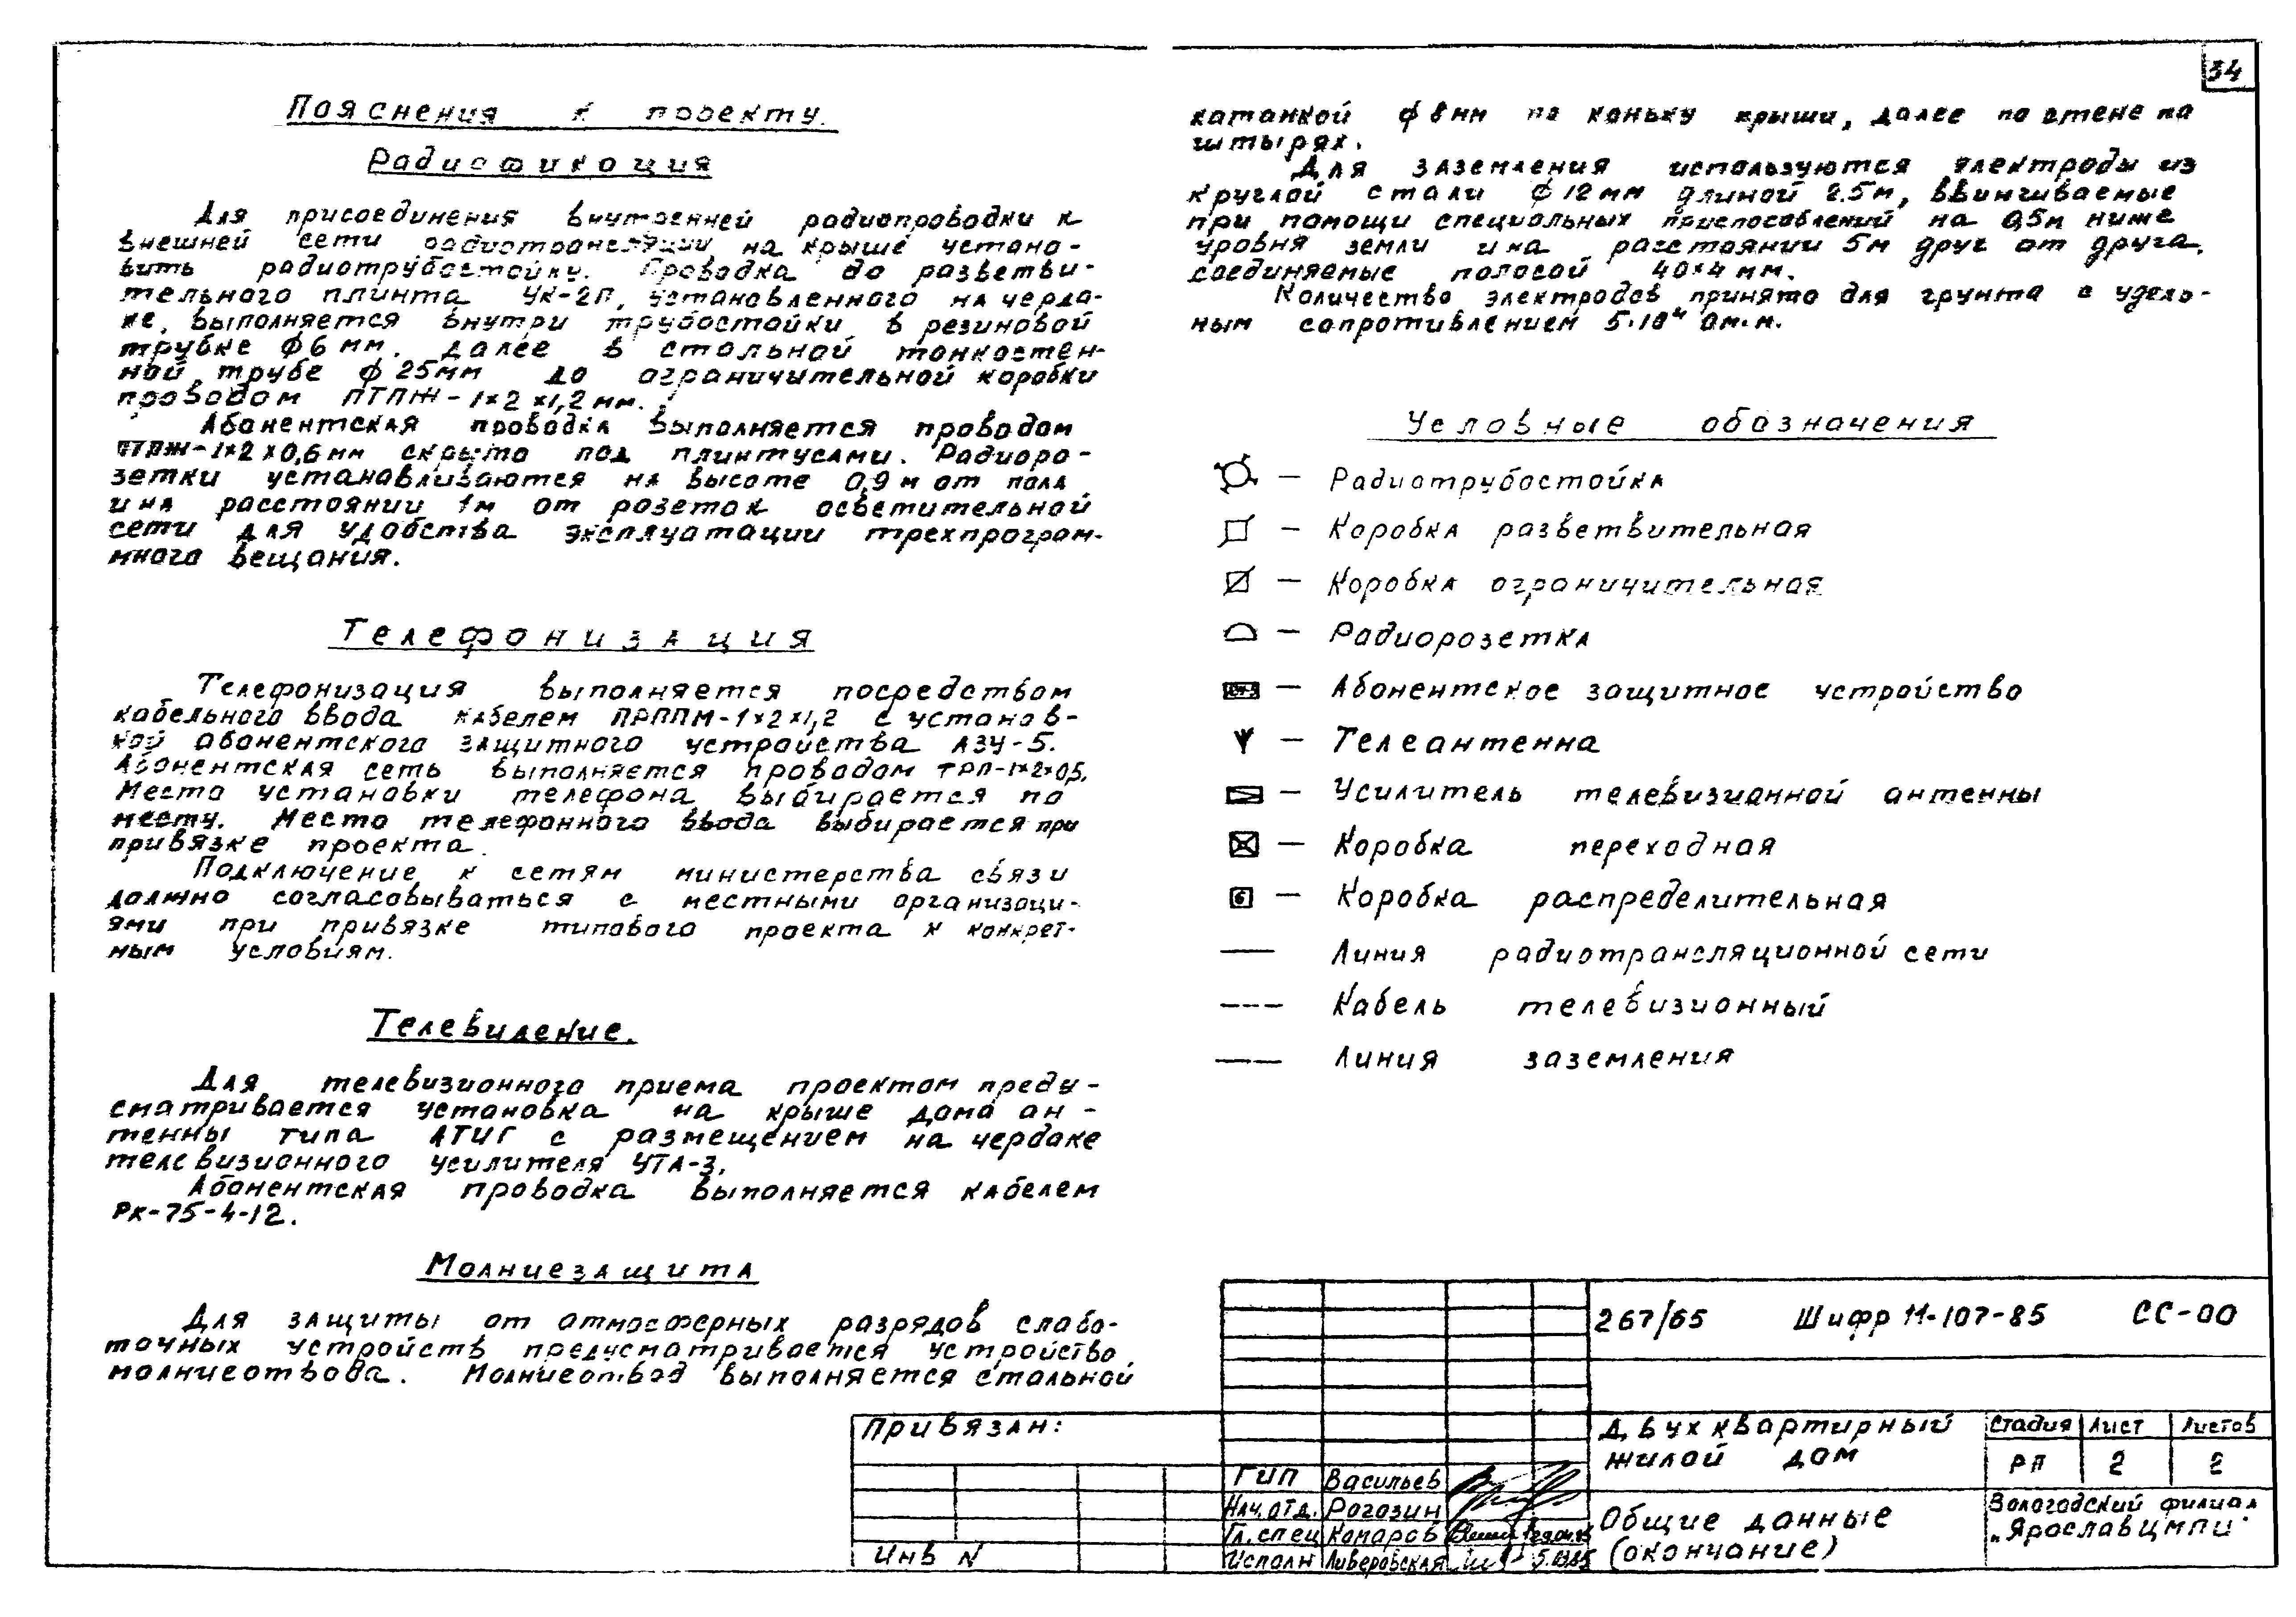 34
Пояснения к проекту.
Радиофикация
Для присоединения внутренней радиопроводки к
внешней сети радиотрансляции на крыше устано-
вить радиотрубостойку. Проводка до разветви-
тельного плинта УК-2П, установленного на черда-
ке, выполняется внутри трубостойки в резиновой
трубке ф6 мм. далее в стольной тонкостен-
ной трубе ф 25мм до ограничительной коробки
проводом ПТПЖ-1×2×1,2 мм.
Абонентская проводка выполняется проводом
ПТПЖ-1×2×0,6 мм скрыто под плинтусами. Радиоро-
зетки устанавливаются на высоте 0,9 м от пола
и на расстоянии 1м от розеток осветительной
сети для удобства эксплуатации трехпрограм-
много вещания.
Телефонизация
Телефонизация выполняется посредством
кабельного ввода кабелем ПРППМ-1×2×1,2 с установ-
кой абонентского защитного устройства АЗУ-5.
Абонентская сеть выполняется проводом ТРП-1×2×0,5.
Место установки телефона выбирается по
месту. Место телефонного ввода выбирается при
привязке проекта.
Подключение к сетям министерства связи
должно согласовываться с местными организаци-
ями при привязке типового проекта к конкрет-
ным условиям.
Телевидение.
Для телевизионного приема проектом преду-
сматривается установка на крыше дома ан-
тенны типа АТИГ с размещением на чердаке
телевизионного усилителя УТА-3.
Абонентская проводка выполняется кабелем
РК-75-4-12.
Молниезащита
Для защиты от атмосферных разрядов слабо-
точных устройств предусматривается устройство
молниеотвода. Молниеотвод выполняется стальной
катанкой ф 8мм по коньку крыши, далее по стене на
штырях.
Для заземления используются электроды из
круглой стали ф 12мм длиной 2.5м, ввинчиваемые
при помощи специальных приспособлений на 0,5м ниже
уровня земли и на расстоянии 5м друг от друга,
соединяемые полосой 40×4 мм.
Количество электродов принято для грунта с удель-
ным сопротивлением 5·10⁴ Ом.м.
Условные обозначения
— Радиотрубостойка
— Коробка разветвительная
— Коробка ограничительная
— Радиорозетка
— Абонентское защитное устройство
— Телеантенна
— Усилитель телевизионной антенны
— Коробка переходная
6 — Коробка распределительная
Линия радиотрансляционной сети
Кабель телевизионный
Линия заземления
267/65 Шифр 11-107-85 СС-00
Привязан:
Инв N
ГИП Васильев
Нач.отд. Рогозин
Гл.спец Комаров
Исполн Ливеровская 5.03.85
Двухквартирный
жилой дом
Стадия Лист Листов
РП 2 2
Общие данные
(окончание)
Вологодский филиал
„Ярославцмпи"